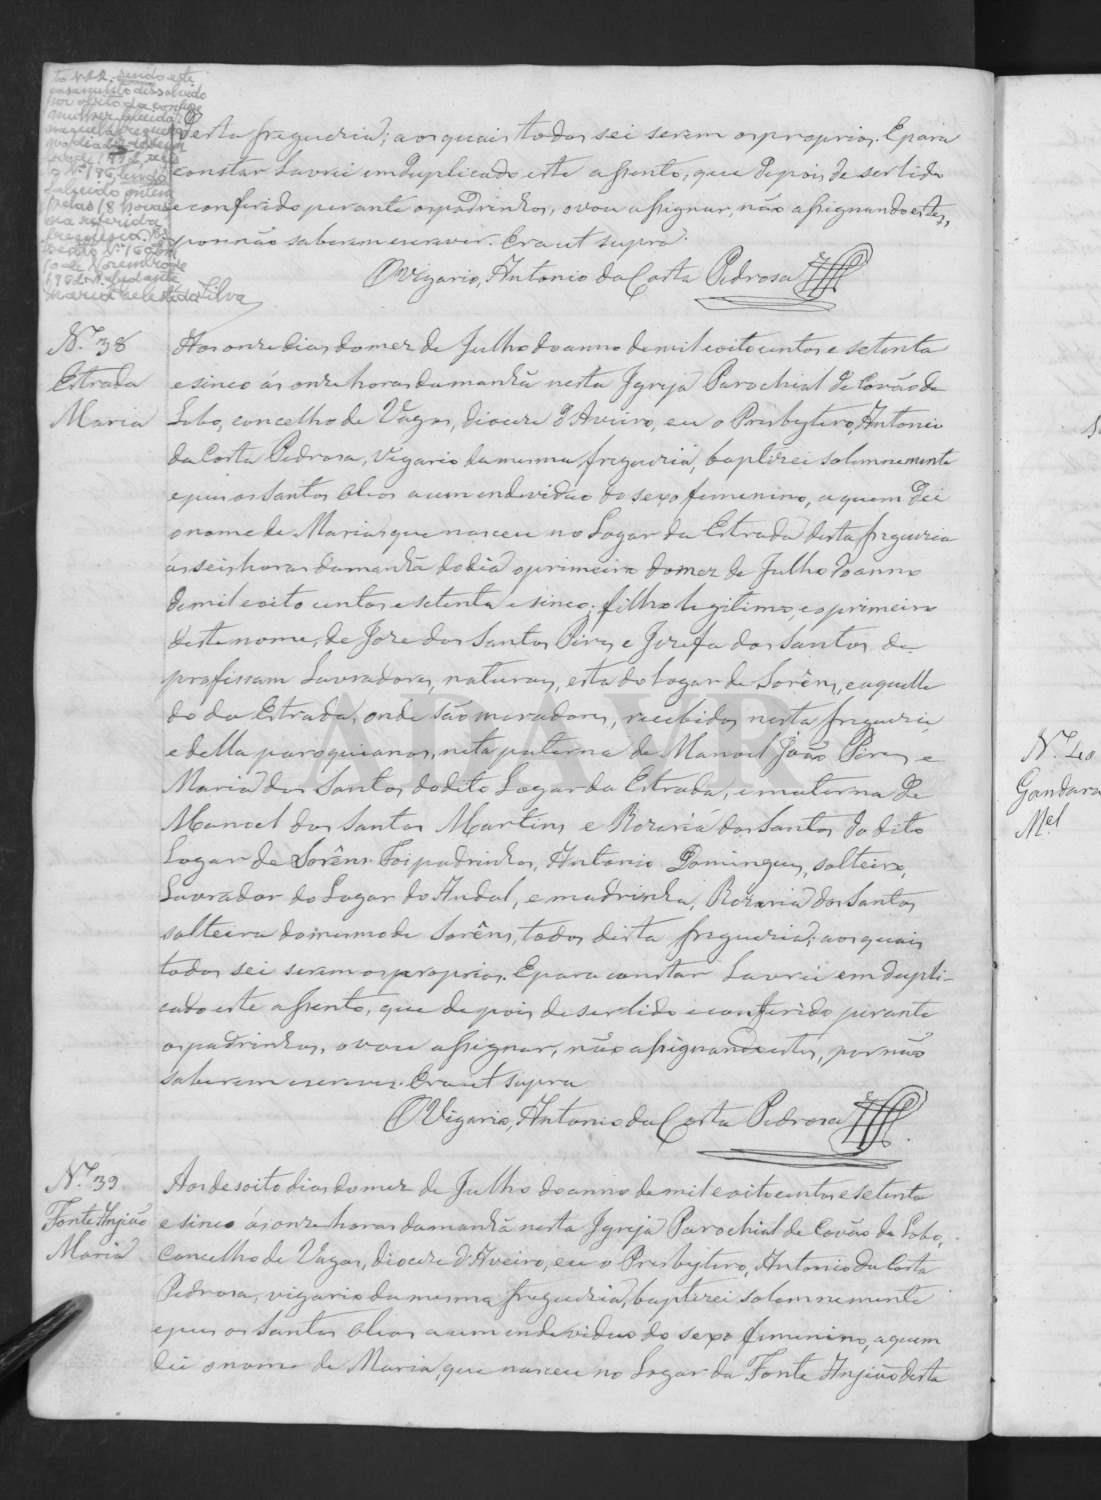 to Nº 22, sendo este
casamento dissolvido
por obito da
mulher falecida
naquela freguesia
no dia
Nº 136, tendo
falecido ontem
pelas 18 horas
na referida
freguesia.
Nº 160. Em
10 de Novembro de
Ajudante
Maria Celeste da Silva
desta freguezia; aos quais todos sei serem os proprios. E para
constar Lavrei em duplicado este assento, que depois de ser lido
e conferido perante os padrinhos, o vou assignar, não assignando estes,
por não saberem escrever. Era ut supra.
O Vigario, Antonio da Costa Pedrosa
N.º 38
Estrada
Maria
Aos onze dias do mez de Julho do anno de mil e oito centos e setenta
e sinco ás onze horas da manhã nesta Igreja Parochial de Covão do
Lobo, concelho de Vagos, diocese d'Aveiro, eu o Presbytero, Antonio
da Costa Pedrosa, Vigario da mesma freguezia, baptizei solemnemente
e pus os Santos Oleos a um endividuo do sexo femenino, a quem dei
o nome de Maria, que nasceu no Logar da Estrada desta freguezia
ás seis horas da manhã do dia o primeiro do mez de Julho do anno
de mil e oito centos e setenta e sinco; filha legitima, e o primeiro
deste nome, de Joze dos Santos Pires e Jozefa dos Santos de
profissam Lavradores, naturaes, esta do Logar de Sorêns, e aquelle
do da Estrada, onde são moradores, recebidos nesta freguezia
e della paroquianos, neta paterna de Manoel João Pires e
Maria dos Santos do dito Logar da Estrada, e materna de
Manoel dos Santos Martins e Rozaria dos Santos do dito
Logar de Sorêns. Foi padrinho, Antonio Domingues, solteiro,
Lavrador do Logar do Andal, e madrinha, Rozaria dos Santos
solteira do mesmo de Sorêns, todos desta freguezia; aos quais
todos sei serem os proprios. E para constar Lavrei em dupli-
cado este assento, que depois de ser lido e conferido perante
os padrinhos, o vou assignar, não assignando estes, por não
saberem escrever. Era ut supra
O Vigario, Antonio da Costa Pedrosa
N.º 39
Fonte Anjião
Maria
Aos desoito dias do mez de Julho do anno de mil e oito centos e setenta
e sinco ás onze horas da manhã nesta Igreja Parochial de Covão do Lobo,
Concelho de Vagos, diocese d'Aveiro, eu o Presbytero, Antonio da Costa
Pedrosa, vigario da mesma freguezia, baptizei solemnemente
e pus os Santos Oleos a um endividuo do sexo femenino, a quem
dei o nome de Maria, que nasceu no Logar da Fonte Anjião desta
N.º 40
Gandara
M.el
ADAVR